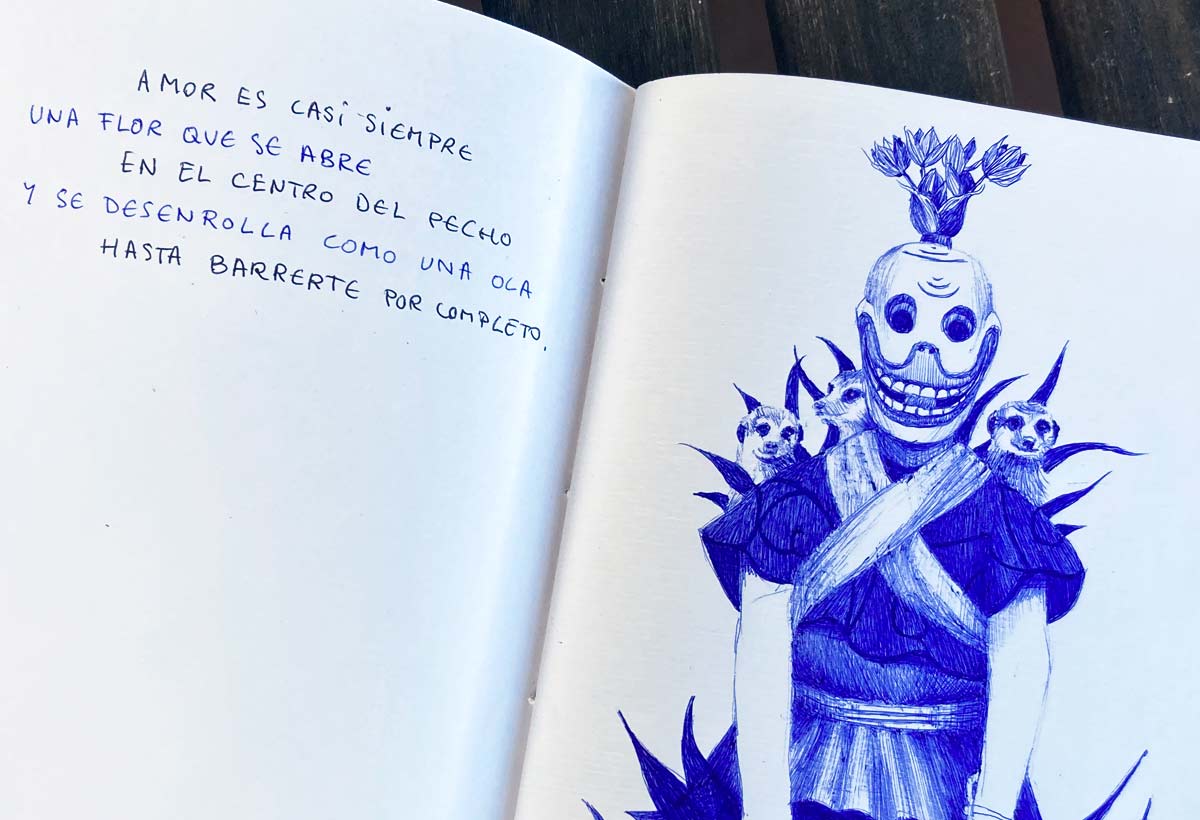 AMOR ES CASi SiEMPRE
UNA FLOR QUE SE ABRE
EN EL CENTRO DEL PECHO
Y SE DESENROLLA COMO UNA OLA
HASTA BARRERTE POR COMPLETO.